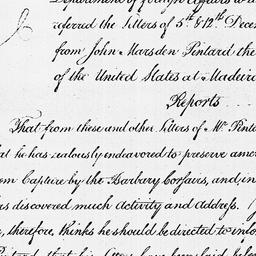 Department of foreign Affairs to w
referred the Letters of 5th & 12th Decem
from John Marsden Pintard the
of the United States at Madeira
Reports
That from these and other Letters of Mr. Pinta
at he has zealously endeavored to preserve amer
om Capture by the Barbary Corsairs, and, in
as discovered much Activity and Address.
, therefore, thinks he should be directed to infor
that his
have been laid before